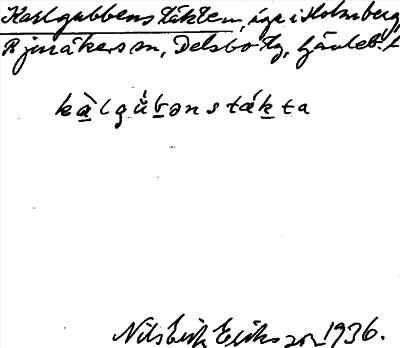 Karlgubbenstäkten, äga i Holmberg,
Bjuråkers sn, Delsbo tg, Gävleb. l
kàlgúbənstǽkta
Nils Erik Eriksson 1936.